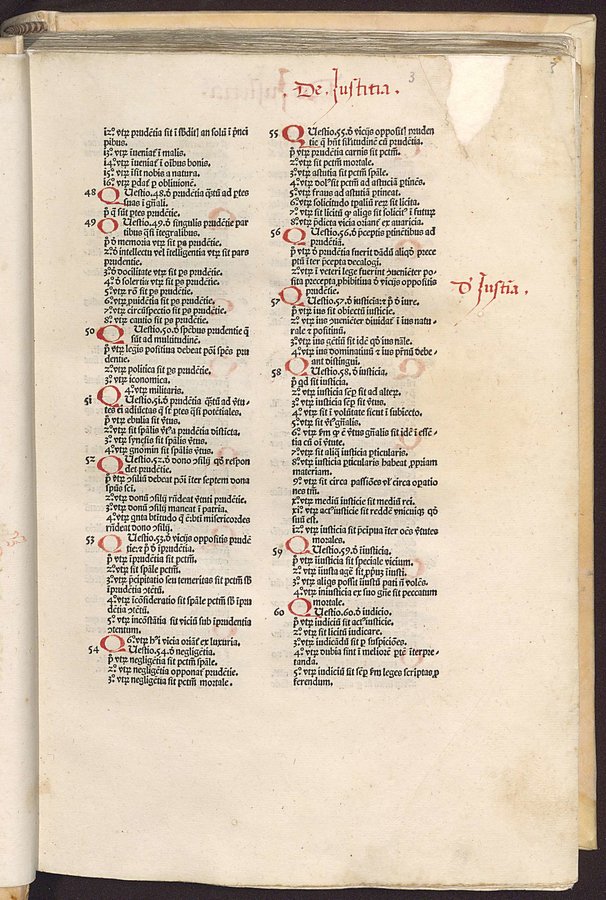 3
. De . Justitia .
12.° vtrꝝ prudētia sit ī sb̄dit̄ an solū ī p̄nci
pibus.
13.° vtrꝝ īueniat̄ ī malis.
14.° vtrꝝ īueniat̄ ī oībus bonis.
15.° vtrꝝ īsit nobis a natura.
16.° vtrꝝ p̄dat̄ ꝑ obliuionē.
48 Questio.48.ō prudētia q̄tū ad ptes
suas ī gn̄ali.
p̄ q̄ sūt ptes prudētie.
49 Questio.49.ō singulis prudētie par
tibus q̄si ītegralibus.
p̄ ō memoria vtrꝝ sit ps prudētie.
2.° ō intellectu vel ītelligentia vtrꝝ sit pars
prudentie.
3.° ō docilitate vtrꝝ sit ps prudētie.
4.° ō solertia vtrꝝ sit ps prudētie.
5.° vtrꝝ rō sit ps prudētie.
6.° vtrꝝ ꝓuidētia sit ps prudētie.
7.° vtrꝝ circūspectio sit ps prudētie.
8.° vtrꝝ cautio sit ps prudētie.
50 Questio.50.ō sp̄ebus prudentie q̄
sūt ad multitudinē.
p̄ vtrꝝ legis positiua debeat pōi sp̄es pru
dentie.
2.° vtrꝝ politica sit ps prudētie.
3.° vtrꝝ iconomica.
4.° vtrꝝ militaris.
51 Questio.51.ō prudētia q̄tū ad v̄tu-
tes ei adiūctas q̄ sūt ptes q̄si potētiales.
p̄ vtrꝝ ebulia sit v̄tus.
2.° vtrꝝ sit sp̄alis v̄t⁹ a prudētia distīcta.
3.° vtrꝝ synesis sit sp̄alis v̄tus.
4.° vtrꝝ gnomin sit sp̄alis v̄tus.
52 Questio.52.ō dono ꝯsilij qō respon
det prudētie.
p̄ vtrꝝ ꝯsiliū debeat pōi īter septem dona
spūs sci.
2.° vtrꝝ donū ꝯsilij rn̄deat v̄tuti prudētie.
3.° vtrꝝ donū ꝯsilij maneat ī patria.
4.° vtrꝝ qnta btītudo q̄ ē:bti misericordes
rn̄deat dono ꝯsilij.
53 Questio.53.ō vicijs oppositis prudē
tie:⁊ p̄ ō īprudētia.
p̄ vtrꝝ īprudētia sit pctm̄.
2.° vtrꝝ sit sp̄ale pctm̄.
3.° vtrꝝ p̄cipitatio seu temeritas sit pctm̄ sb̄
īprudētia ꝯtētū.
4.° vtrꝝ īcōsideratio sit sp̄ale pctm̄ sb̄ īpru
dētia ꝯtētū.
5.° vtrꝝ incōstātia sit viciū sub īprudentia
ꝯtentum.
6.° vtrꝝ h̄ vicia oriāt̄ ex luxuria.
54 Questio.54.ō negligētia.
p̄ vtrꝝ negligētia sit pctm̄ sp̄ale.
2.° vtrꝝ negligētia opponat̄ prudētie.
3.° vtrꝝ negligētia sit pctm̄ mortale.
55 Questio.55.ō vicijs opposit̄ pruden
tie q̄ hn̄t sīlitudinē cū prudētia.
p̄ vtrꝝ prudētia carnis sit pctm̄.
2.° vtrꝝ sit pctm̄ mortale.
3.° vtrꝝ astutia sit pctm̄ sp̄ale.
4.° vtrꝝ dol⁹ sit pctm̄ ad astuciā ptinēs.
5.° vtrꝝ fraus ad astutiā ptineat.
6.° vtrꝝ solicitudo tpaliū rerū sit licita.
7.° vtrꝝ sit licitū ꝙ aliqs sit solicit⁹ ī futuꝝ
8.° vtrꝝ p̄dicta vicia oriant̄ ex auaricia.
56 Questio.56.ō p̄ceptis ptinētibus ad
prudētiā.
p̄ vtrꝝ ō prudētia fuerit dādū aliqō prece
ptū īter p̄cepta decalogi.
2.° vtrꝝ ī veteri lege fuerint ꝯueniēter po-
sita precepta ꝓhibitiua ō vicijs oppositis
prudētie.
57 Questio.57.ō iusticia:⁊ p̄ ō iure.
p̄ vtrꝝ ius sit obiectū iusticie.
2.° vtrꝝ ius ꝯueniēter diuidat̄ ī ius natu-
rale ⁊ positiuū.
3.° vtrꝝ ius gētiū sit idē qō ius nāle.
4.° vtrꝝ ius dominatiuū ⁊ ius pr̄nū debe-
ant distingui.
58 Questio.58.ō iusticia.
p̄ qd sit iusticia.
2.° vtrꝝ iusticia sēꝑ sit ad alteꝝ.
3.° vtrꝝ iusticia sēꝑ sit v̄tus.
4.° vtrꝝ sit ī volūtate sicut ī subiecto.
5.° vtrꝝ sit v̄t⁹ gn̄alis.
6.° vtrꝝ ẜm ꝙ ē v̄tus gn̄alis sit idē ī essē-
tia cū oī v̄tute.
7.° vtrꝝ sit aliq̄ iusticia pticularis.
8.° vtrꝝ iusticia pticularis habeat ꝓpriam
materiam.
9.° vtrꝝ sit circa passiōes vl̓ circa opatio
nes tm̄.
x.° vtrꝝ mediū iusticie sit mediū rei.
xi.° vtrꝝ act⁹ iusticie sit reddē vnicuiqꝫ qō
suū est.
12.° vtrꝝ iusticia sit p̄cipua īter oēs v̄tutes
morales.
59 Questio.59.ō iniusticia.
p̄ vtrꝝ īiusticia sit speciale vicium.
2.° vtrꝝ iniusta age̅ sit ꝓpriū īiusti.
3.° vtrꝝ aliqs possit iiustū pati n̄ volēs.
4.° vtrꝝ iniusticia ex suo gn̄e sit peccatum
mortale.
60 Questio.60.ō iudicio.
p̄ vtrꝝ iudiciū sit act⁹ iusticie.
2.° vtrꝝ sit licitū iudicare.
3.° vtrꝝ iudicādū sit ꝑ suspiciōes.
4.° vtrꝝ dubia sint ī meliorē ptē īterpre-
tanda.
5.° vtrꝝ iudiciū sit sēꝑ ẜm leges scriptas ꝓ
ferendum.
D' Justi̅a .